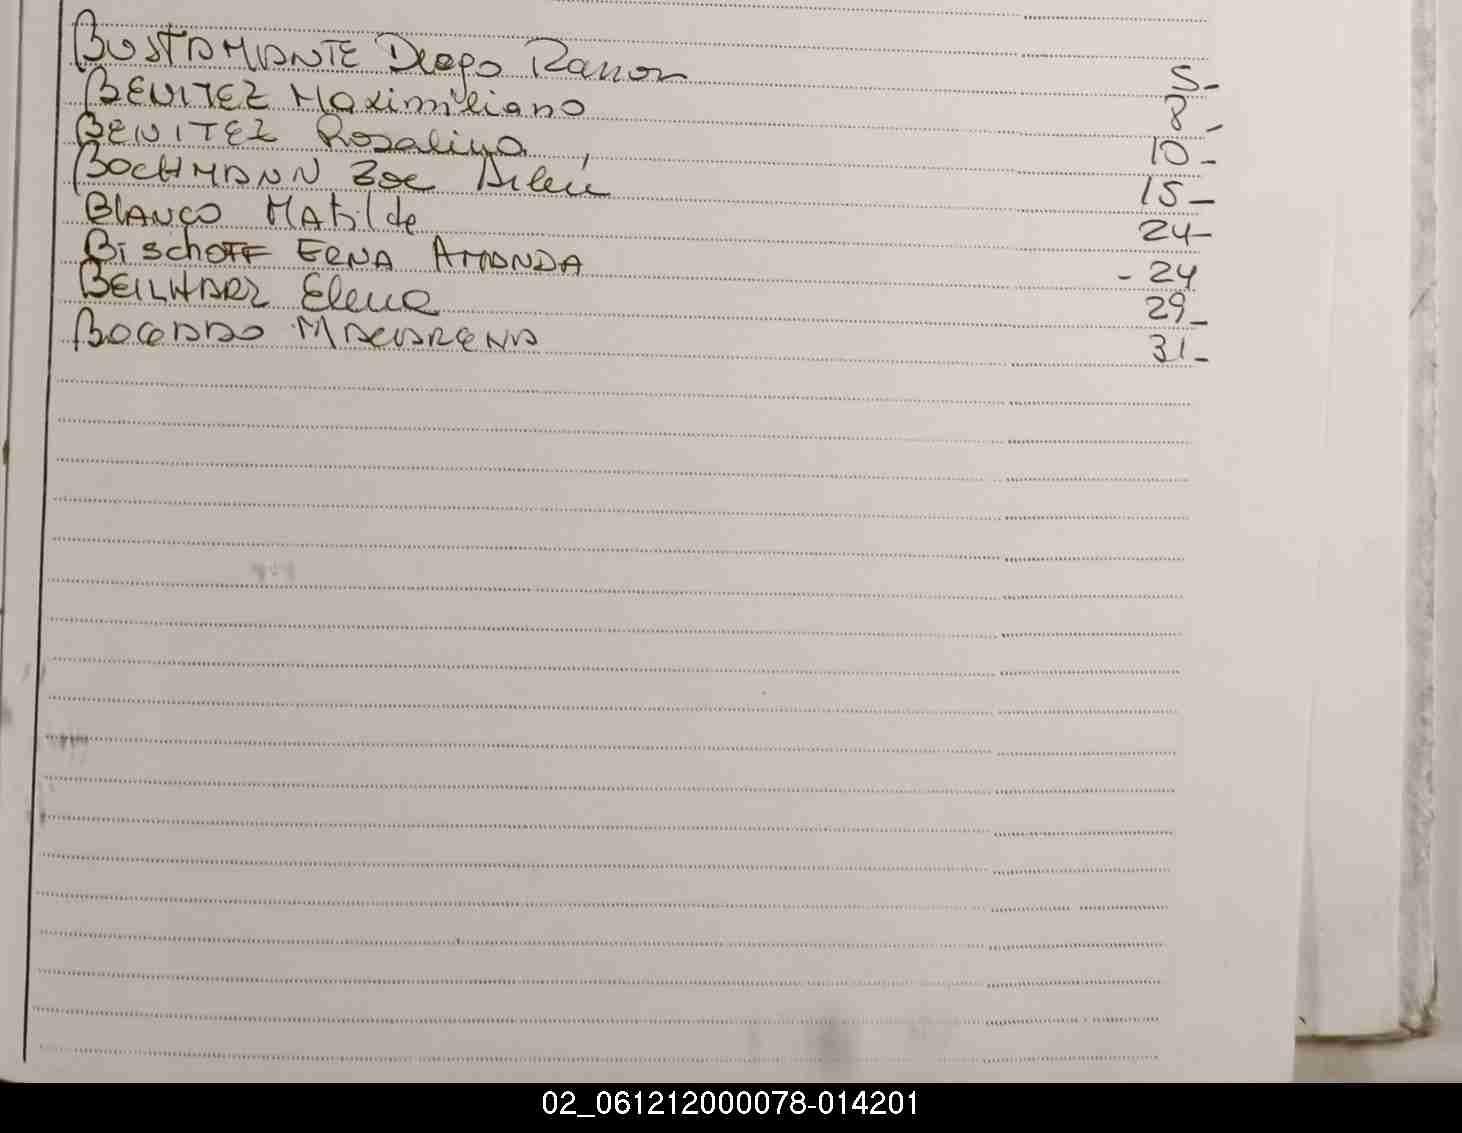 BUSTAMANTE Diego Ramon 5-
BENITEZ Maximiliano 8-
BENITEZ Rosalina, 10-
BOCHMANN Zoe Ailen 15-
BlANCO MAtilde 24-
BischOFF ERNA AMANDA - 24
BEILHARZ Elena 29-
BOGADO MACARENA 31-
02_061212000078-014201